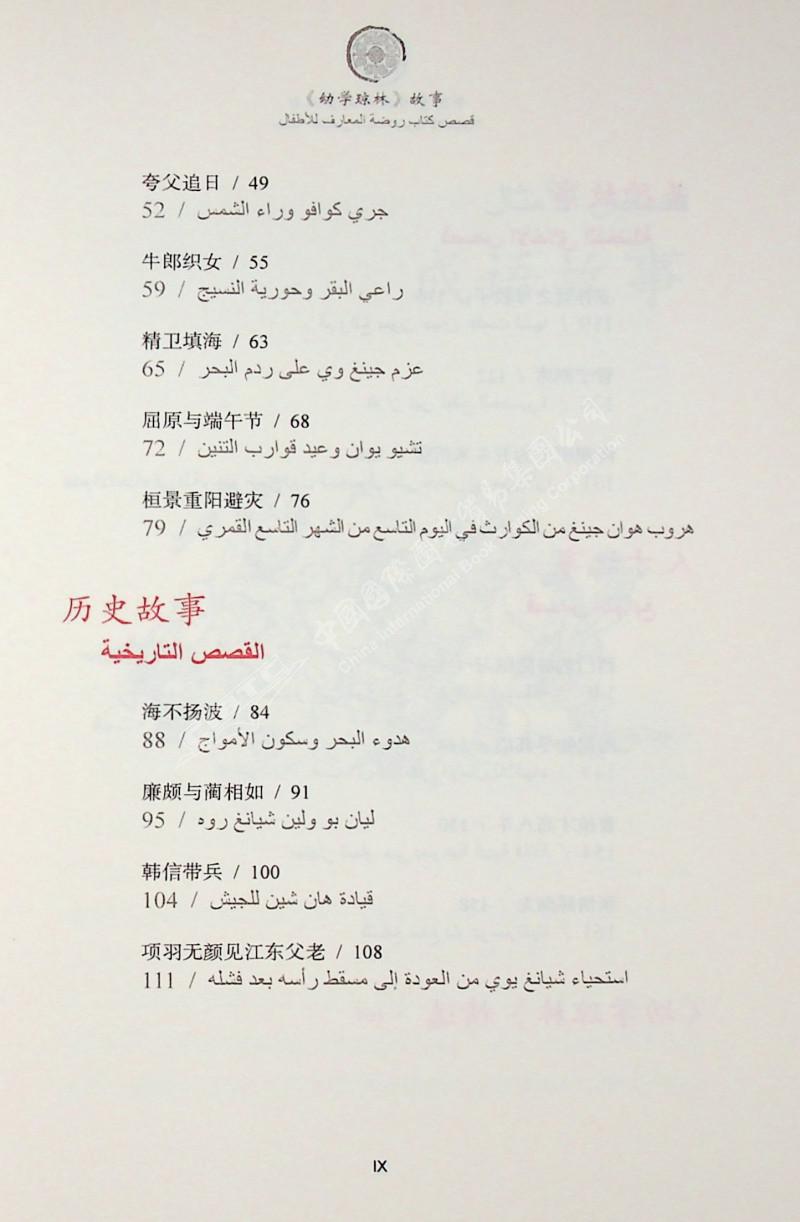 《幼学琼林》故事
قصص كتاب روضة المعارف للأطفال
夸父追日 / 49
جري كوافو وراء الشمس / 52
牛郎织女 / 55
راعي البقر وحورية النسيج / 59
精卫填海 / 63
عزم جينغ وي على ردم البحر / 65
屈原与端午节 / 68
تشيو يوان وعيد قوارب التنين / 72
桓景重阳避灾 / 76
هروب هوان جينغ من الكوارث في اليوم التاسع من الشهر التاسع القمري / 79
历史故事
القصص التاريخية
海不扬波 / 84
هدوء البحر وسكون الأمواج / 88
廉颇与蔺相如 / 91
ليان بو ولين شيانغ روه / 95
韩信带兵 / 100
قيادة هان شين للجيش / 104
项羽无颜见江东父老 / 108
استحياء شيانغ يوي من العودة إلى مسقط رأسه بعد فشله / 111
中国国际图书贸易集团公司
China International Book
IX